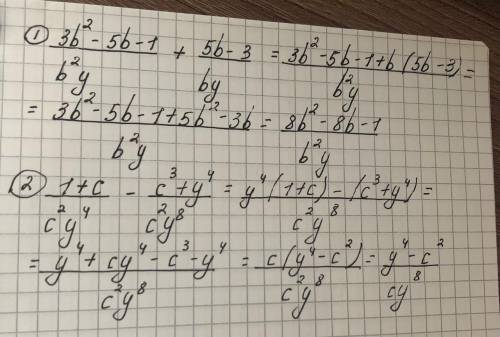 ① (3b² - 5b - 1)/(b²y) + (5b - 3)/(by) = (3b² - 5b - 1 + b(5b - 3))/(b²y) =
= (3b² - 5b - 1 + 5b² - 3b)/(b²y) = (8b² - 8b - 1)/(b²y)
② (1 + c)/(c²y⁴) - (c³ + y⁴)/(c²y⁸) = (y⁴(1 + c) - (c³ + y⁴))/(c²y⁸) =
= (y⁴ + cy⁴ - c³ - y⁴)/(c²y⁸) = (c(y⁴ - c²))/(c²y⁸) = (y⁴ - c²)/(cy⁸)